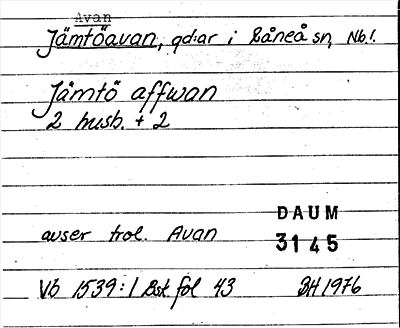 Avan
Jämtöavan, gd:ar i Råneå sn, Nb.
Jämtö affwan
2 hush. + 2
DAUM
avser trol. Avan
3145
Vb 1539:1 Bsk fol 43 BH 1976